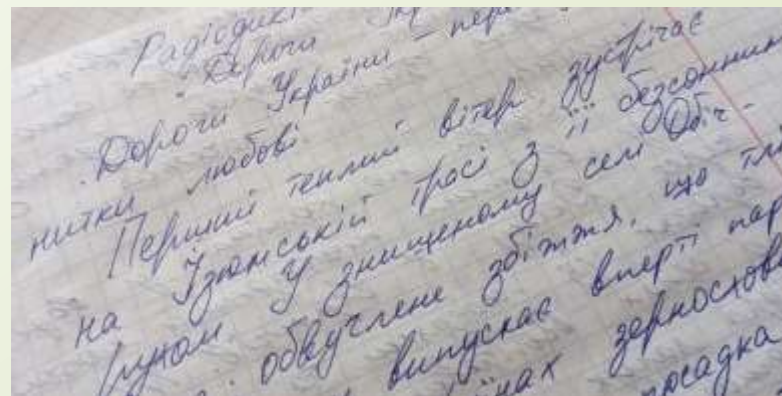 Радіодикт
"Дороги Укр
Дороги України – пере
нитки любові.
Перший теплий вітер зустрічає
на Ізюмській трасі з її безсонним
рухом. У знищеному селі Обіч-
обвуглене збіжжя, що тл
випускає вперті пар
зерносхови
посадка